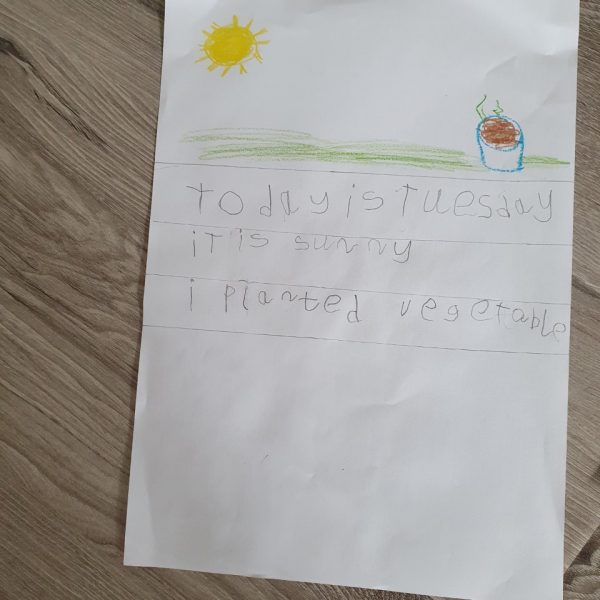 today is tuesday
it is sunny
i planted vegetable